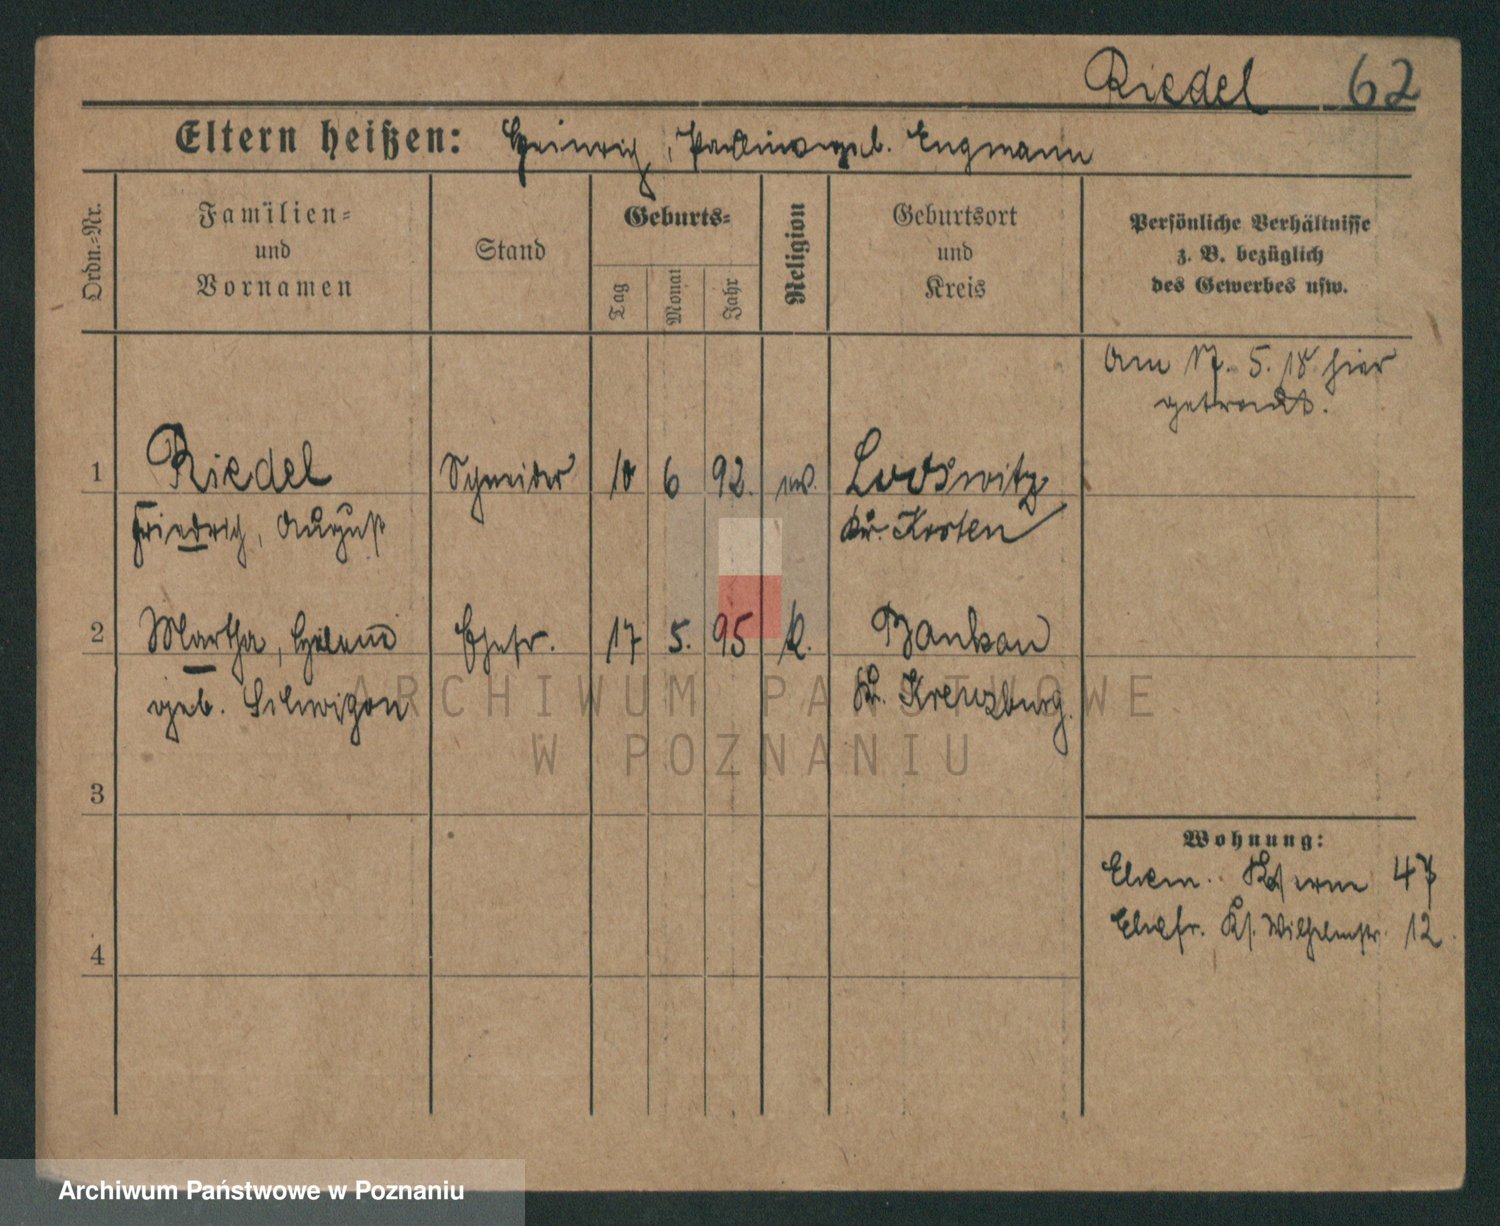 Riedel 62
Eltern heißen: Heinrich, Pauline geb. Engmann
Ordn.-Nr.
Familien-
und
Vornamen
Stand
Geburts-
Tag
Monat
Jahr
Religion
Geburtsort
und
Kreis
Persönliche Verhältnisse
z. B. bezüglich
des Gewerbes usw.
Am 17. 5. 18. hier
getraut.
1 Riedel Schneider 10 6 92. ev.
Friedrich, August Kr. Kosten
2 Martha, Helene Ehefr. 17 5. 95 k. Bankau
geb. Kr. Kreuzburg.
3
4
Wohnung:
Ehem. 47
Ehefr. Wilhelmstr. 12.
ARCHIWUM PAŃSTWOWE
W POZNANIU
Archiwum Państwowe w Poznaniu